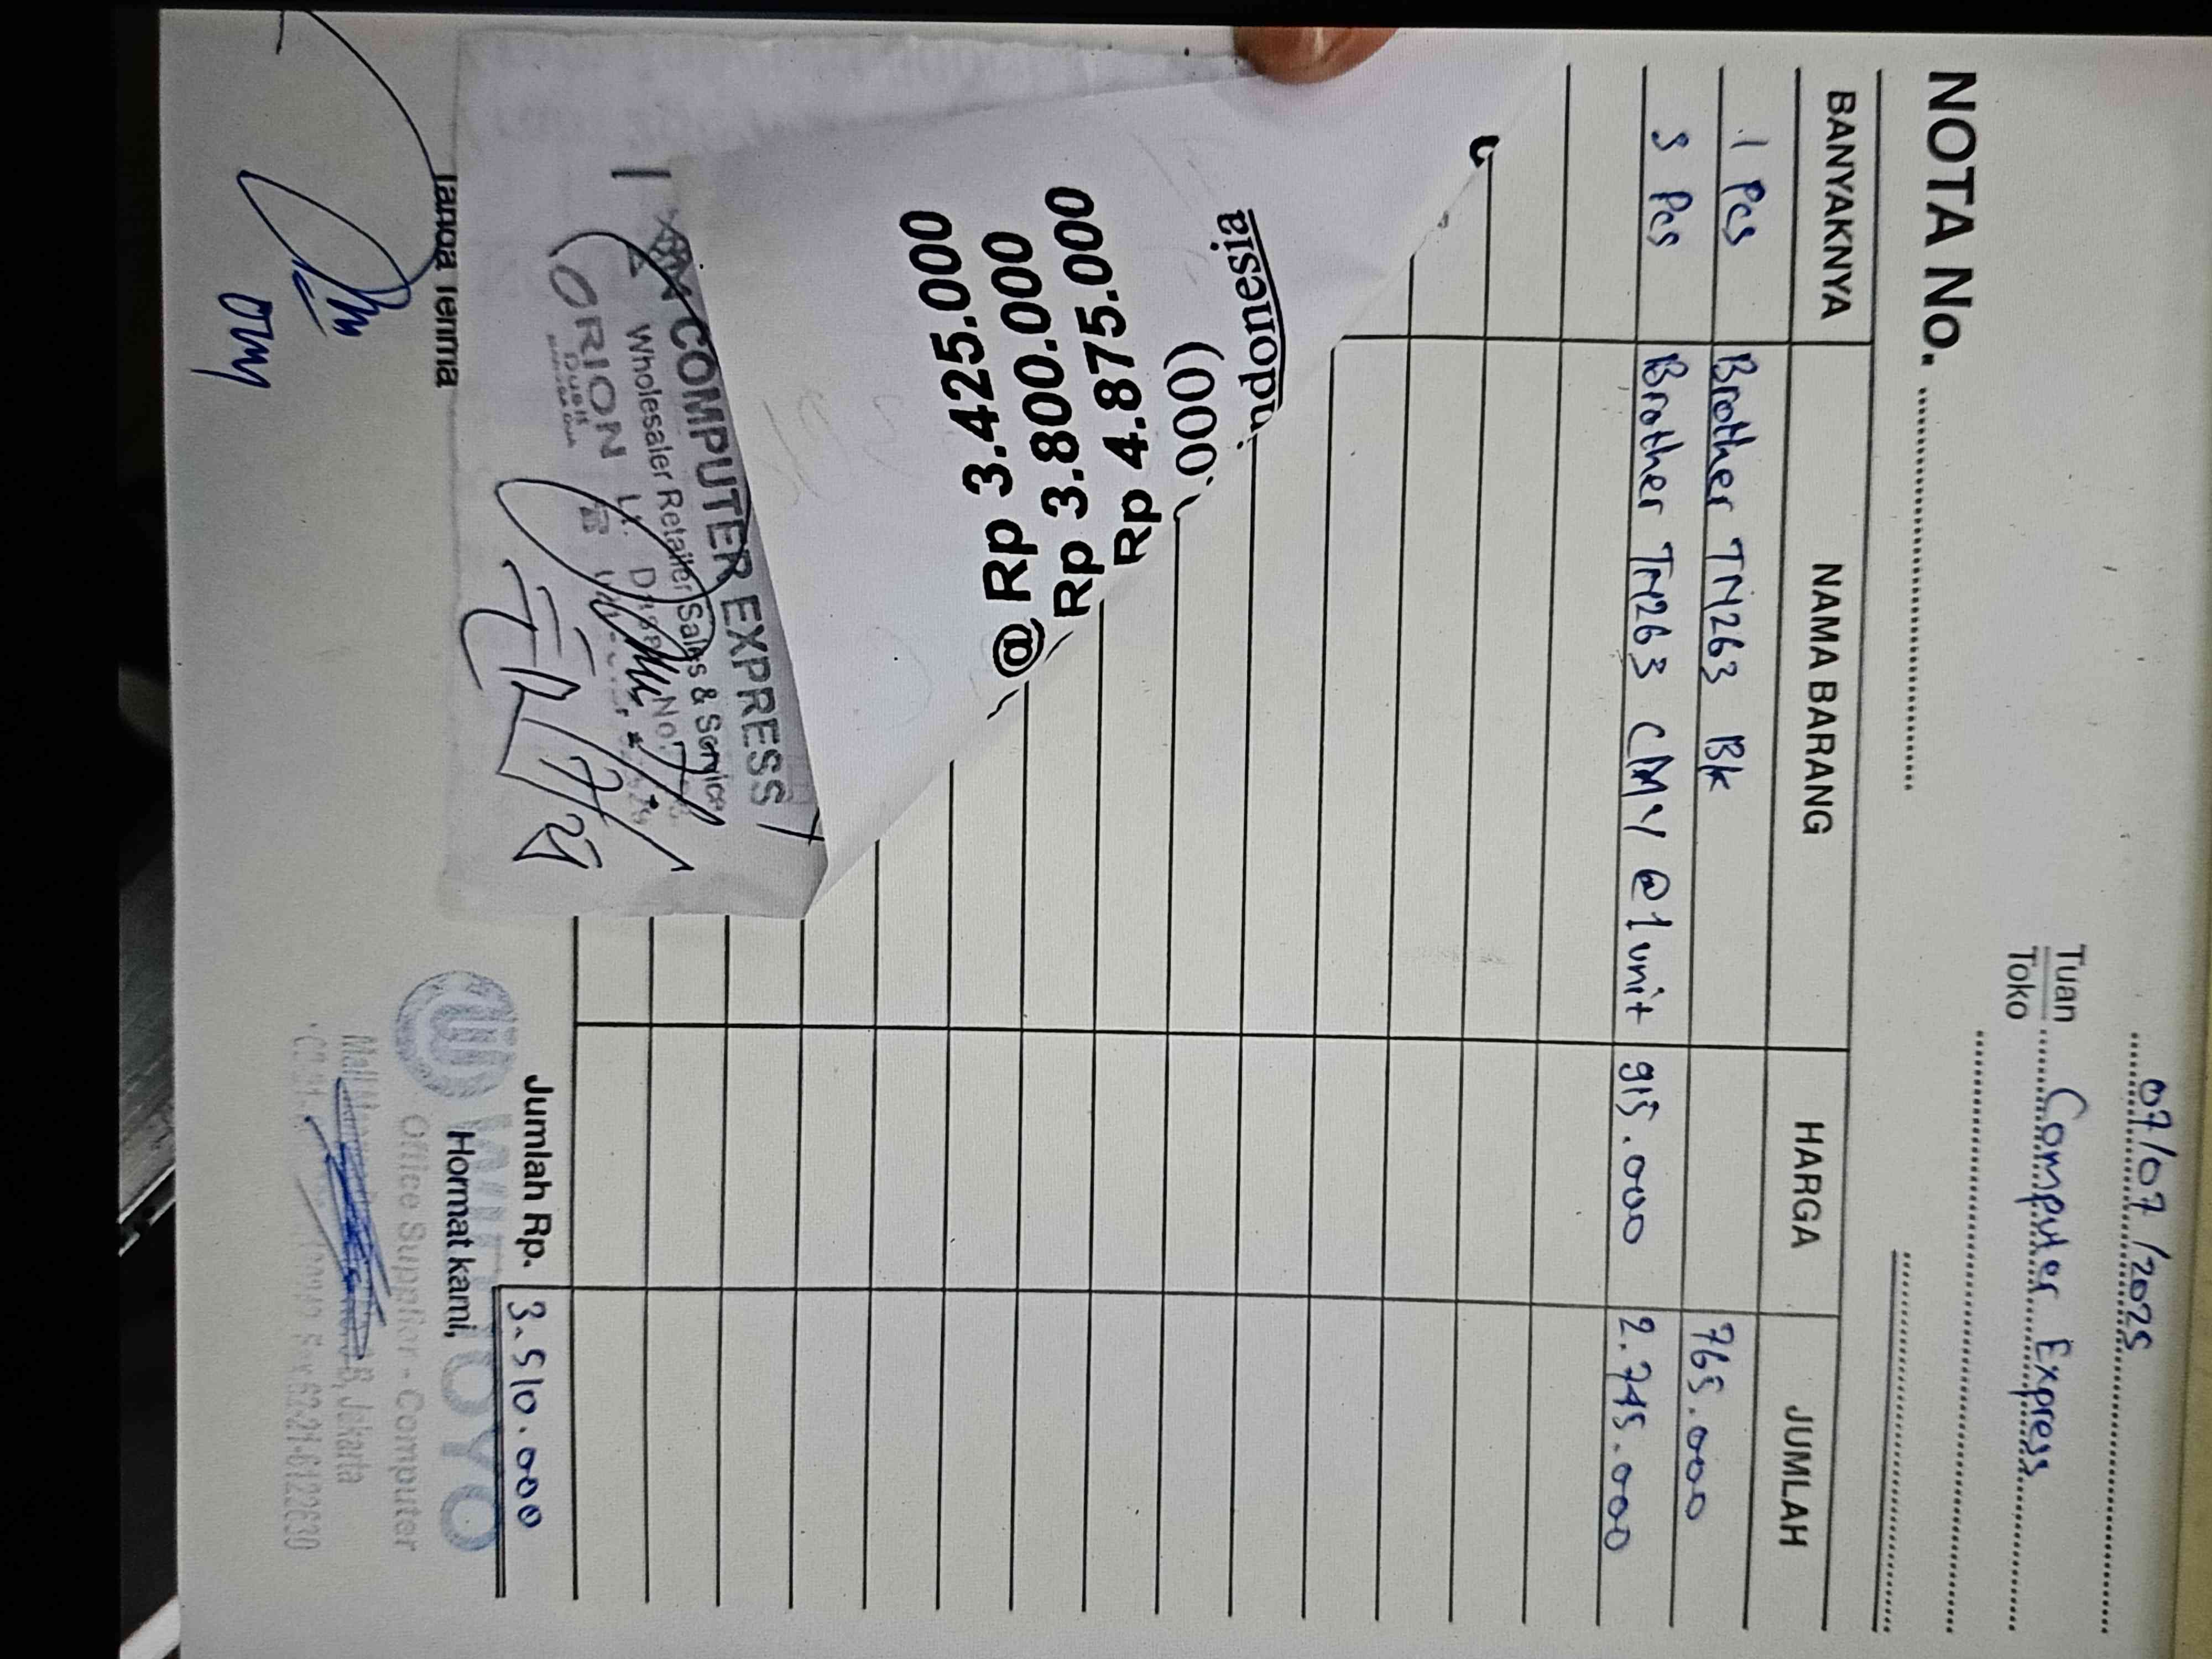 07/07/2025
Tuan
Toko
Computer Express
NOTA No.
BANYAKNYA NAMA BARANG HARGA JUMLAH
1 Pcs Brother TN263 Bk 765.000
3 Pcs Brother TN263 CMY @1 unit 915.000 2.745.000
ndonesia
.000)
Rp 4.875.000
Rp 3.800.000
@ Rp 3.425.000
COMPUTER EXPRESS
Wholesaler Retailer Sales & Service
ORION Lt.
Jumlah Rp. 3.510.000
Tanda Terima
Hormat kami,
Office Supplier - Computer
B, Jakarta